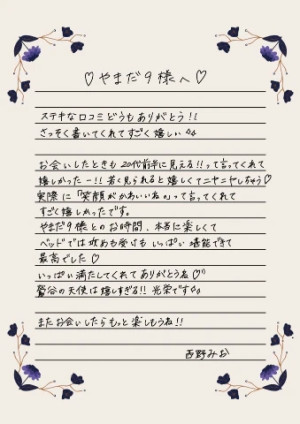 ♡やまだ9様へ♡
ステキな口コミどうもありがとう!!
さっそく書いてくれてすごく嬉しい
お会いしたときも20代前半に見える!!って言ってくれて
嬉しかったー!!若く見られると嬉しくてニヤニヤしちゃう♡
実際に「笑顔がかわいいね」って言ってくれて
すごく嬉しかったです。
やまだ9様とのお時間、本当に楽しくて
ベッドでは攻めも受けもいっぱい堪能できて
最高でした♡
いっぱい満たしてくれてありがとうね♡
鶯谷の天使は嬉しすぎる!!光栄です
またお会いしたらもっと楽しもうね!!
西野みお